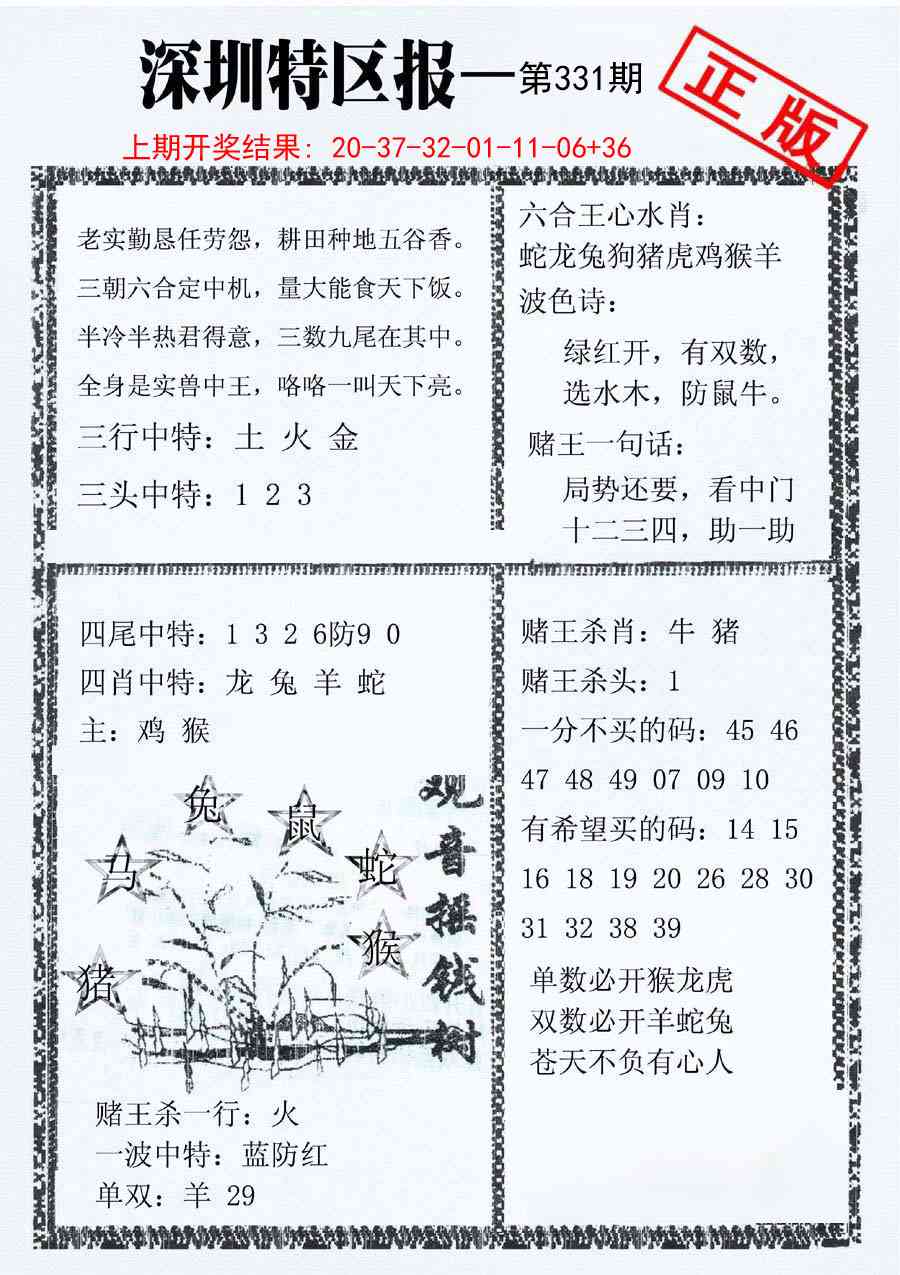 深圳特区报—第331期
正版
上期开奖结果: 20-37-32-01-11-06+36
老实勤恳任劳怨，耕田种地五谷香。
三朝六合定中机，量大能食天下饭。
半冷半热君得意，三数九尾在其中。
全身是实兽中王，咯咯一叫天下亮。
三行中特: 土 火 金
三头中特: 1 2 3
六合王心水肖:
蛇龙兔狗猪虎鸡猴羊
波色诗:
绿红开，有双数，
选水木，防鼠牛。
赌王一句话:
局势还要，看中门
十二三四，助一助
四尾中特: 1 3 2 6防9 0
四肖中特: 龙 兔 羊 蛇
主: 鸡 猴
兔
鼠
马
蛇
猴
猪
观音摇钱树
赌王杀一行: 火
一波中特: 蓝防红
单双: 羊 29
赌王杀肖: 牛 猪
赌王杀头: 1
一分不买的码: 45 46
47 48 49 07 09 10
有希望买的码: 14 15
16 18 19 20 26 28 30
31 32 38 39
单数必开猴龙虎
双数必开羊蛇兔
苍天不负有心人